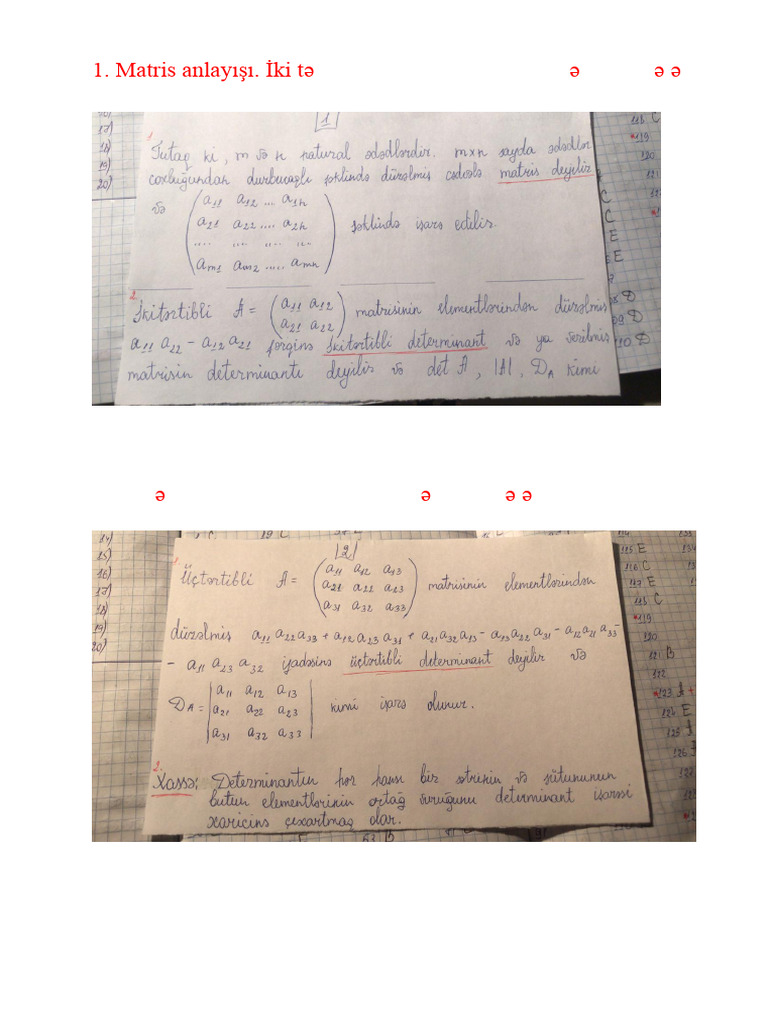 1. Matris anlayışı. İki tə ə ə ə
1
1.
Tutaq ki, m və n natural ədədlərdir. m×n sayda ədədlər
coxluğundan durbucaqlı şəklində düzəlmiş cədvələ matris deyilir
və (a11 a12 ... a1n
a21 a22 .... a2n
.... .. .. .. ..
am1 am2 ..... amn) şəklində işarə edilir.
2.
İkitərtibli A = (a11 a12
a21 a22) matrisinin elementlərindən düzəlmiş
a11 a22 - a12 a21 fərqinə ikitərtibli determinant və ya verilmiş
matrisin determinantı deyilir və det A, |A|, DA kimi
ə ə ə ə
2
1.
Üçtərtibli A = (a11 a12 a13
a21 a22 a23
a31 a32 a33) matrisinin elementlərindən
düzəlmiş a11 a22 a33 + a12 a23 a31 + a21 a32 a13 - a13 a22 a31 - a12 a21 a33 -
- a11 a23 a32 ifadəsinə üçtərtibli determinant deyilir və
DA = |a11 a12 a13
a21 a22 a23
a31 a32 a33| kimi işarə olunur.
2.
Xassə: Determinantın hər hansı bir sətrinin və sütununun
butun elementlərinin ortağ vuruğunu determinant işarəsi
xaricinə çıxartmaq olar.
17)
18)
19)
20)
118 C
119
120
121
C
C
E
E
D
D
110 D
14)
15)
16)
17)
18)
19)
20)
19 C
115 E
116 C
117 E
118 C
119
120
121 B
122
123 A +
124 E
125 A
126
127
133
134
63 B